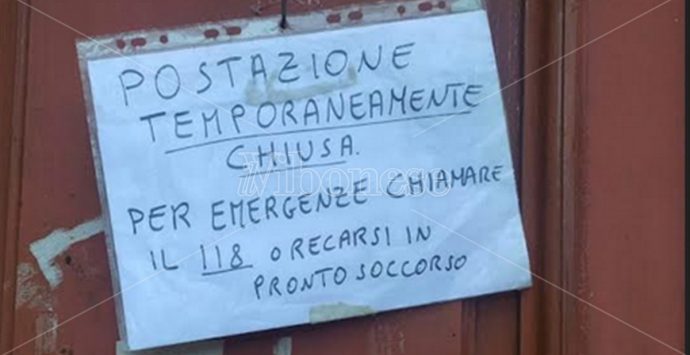 POSTAZIONE
TEMPORANEAMENTE
CHIUSA.
PER EMERGENZE CHIAMARE
IL 118 O RECARSI IN
PRONTO SOCCORSO